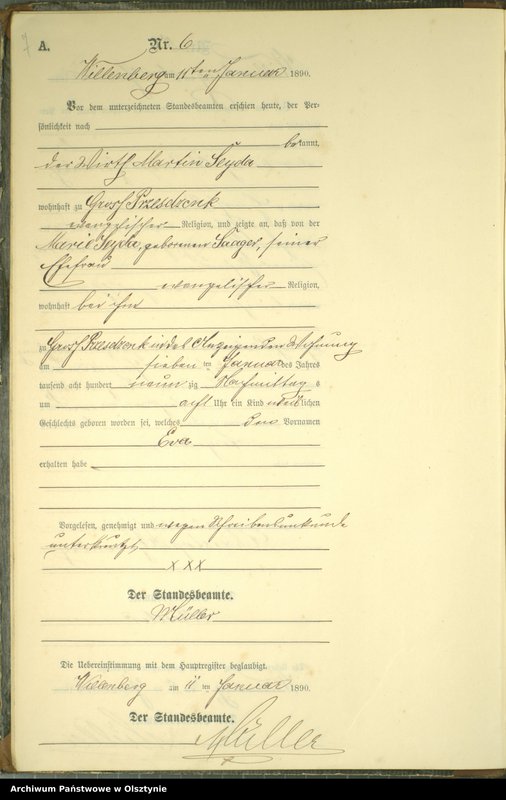 A.
Nr. 6
Willenberg am 11ten Januar 1890.
Vor dem unterzeichneten Standesbeamten erschien heute, der Per-
sönlichkeit nach
bekannt,
der Wirth Martin Seyda
wohnhaft zu Groß Przesdzenk
evangelischer Religion, und zeigte an, daß von der
Marie Seyda, geborenen Saager, seiner
Ehefrau
evangelischer Religion,
wohnhaft bei ihm
zu Groß Przesdzenk in des Anzeigenden Wohnung
am sieben ten Januar des Jahres
tausend acht hundert neun zig Nachmittag s
um acht Uhr ein Kind weiblichen
Geschlechts geboren worden sei, welches den Vornamen
Eva
erhalten habe
Vorgelesen, genehmigt und wegen Schreibensunkunde
unterkreuzt
x x x
Der Standesbeamte.
Müller
Die Uebereinstimmung mit dem Hauptregister beglaubigt.
Willenberg am 11 ten Januar 1890.
Der Standesbeamte.
Müller
Archiwum Państwowe w Olsztynie